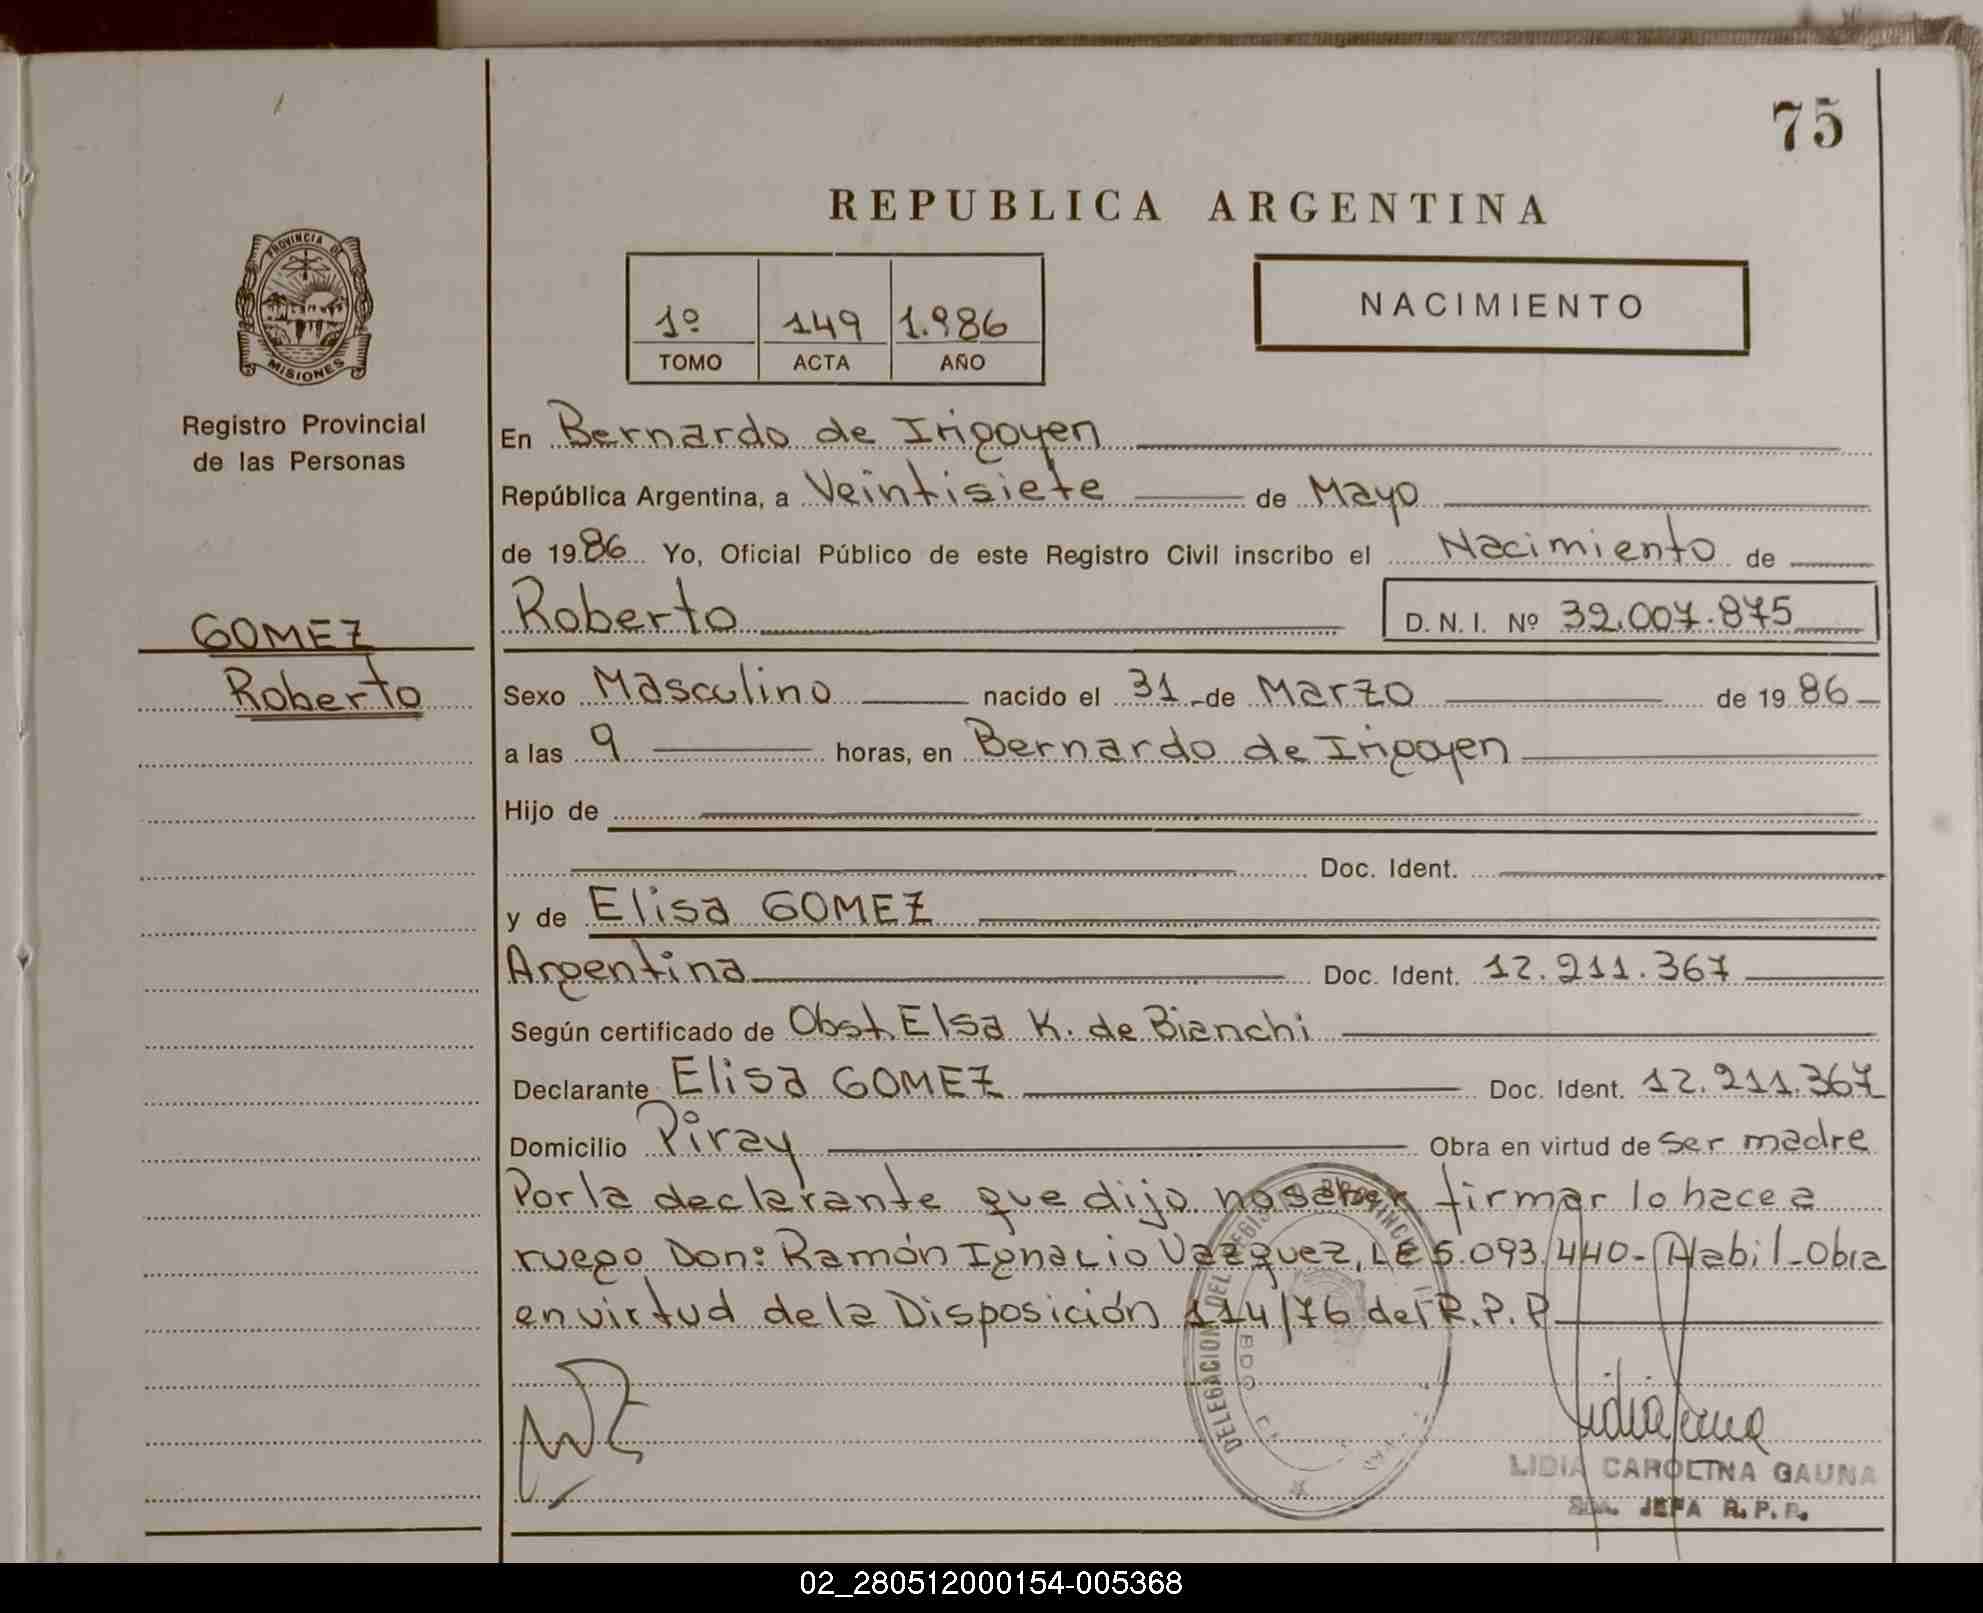 75
REPUBLICA ARGENTINA
PROVINCIA DE
MISIONES
Registro Provincial
de las Personas
1º 149 1.986
TOMO ACTA AÑO
NACIMIENTO
En Bernardo de Irigoyen
República Argentina, a Veintisiete de Mayo
de 1986 Yo, Oficial Público de este Registro Civil inscribo el Nacimiento de
GOMEZ
Roberto
Roberto D.N.I. Nº 32.007.875
Sexo Masculino nacido el 31 de Marzo de 1986
a las 9 horas, en Bernardo de Irigoyen
Hijo de
Doc. Ident.
y de Elisa GOMEZ
Argentina Doc. Ident. 12.211.367
Según certificado de Obst. Elsa K. de Bianchi
Declarante Elisa GOMEZ Doc. Ident. 12.211.367
Domicilio Piray Obra en virtud de ser madre
Por la declarante que dijo no saber firmar lo hace a
ruego Don: Ramón Ignacio Vazquez, LE 5.093.440- Habil-Obra
en virtud de la Disposición 114/76 del R.P.P
DELEGACION DEL REGISTRO PROVINCIAL
Lidia Gauna
LIDIA CAROLINA GAUNA
JEFA R.P.P.
02_280512000154-005368